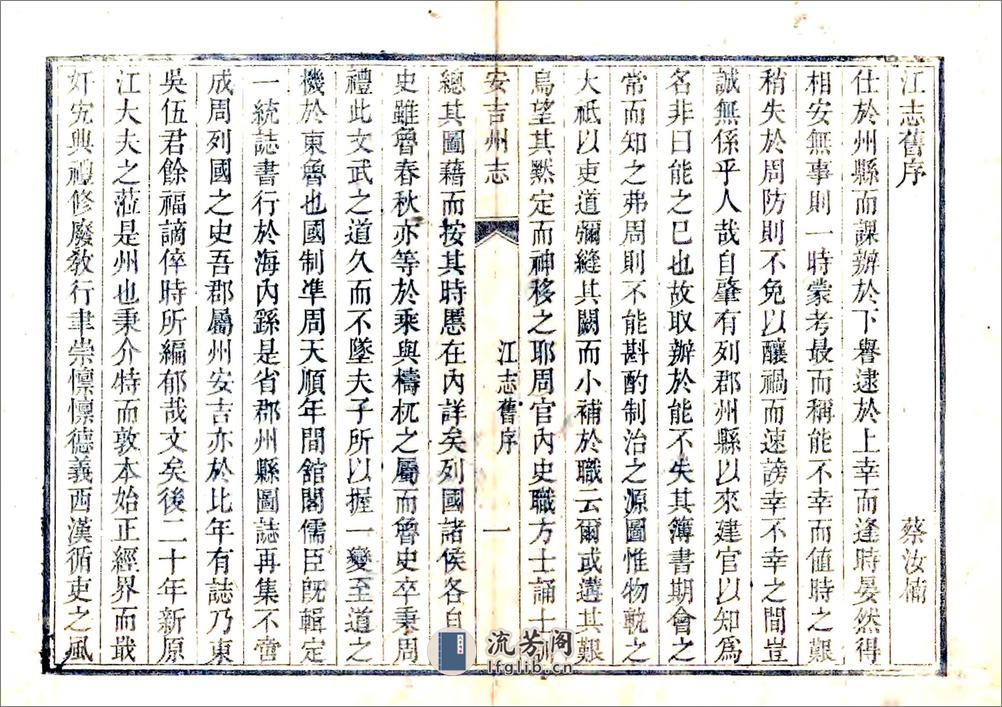 江志舊序
蔡汝楠
仕於州縣而課辦於下譽逮於上幸而逢時晏然得
相安無事則一時蒙考最而稱能不幸而值時之艱
稍失於周防則不免以釀禍而速謗幸不幸之間豈
誠無係乎人哉自肇有列郡州縣以來建官以知爲
名非曰能之已也故取辦於能不失其簿書期會之
常而知之弗周則不能斟酌制治之源圖惟物軌之
大祇以吏道彌縫其闕而小補於職云爾或遘其艱
烏望其默定而神移之耶周官內史職方士誦土訓
安吉州志
江志舊序
一
總其圖藉而按其時慝在內詳矣列國諸侯各自
史雖魯春秋亦等於乘與檮杌之屬而魯史卒秉周
禮此文武之道久而不墜夫子所以握一變至道之
機於東魯也國制準周天順年間舘閣儒臣旣輯定
一統誌書行於海內繇是省郡州縣圖誌再集不啻
成周列國之史吾郡屬州安吉亦於比年有誌乃東
吳伍君餘福謫倅時所編郁哉文矣後二十年新原
江大夫之蒞是州也秉介特而敦本始正經界而戢
奸宄典禮修廢敎行聿崇懍懍德義西漢循吏之風
流芳阁
lfglib.cn